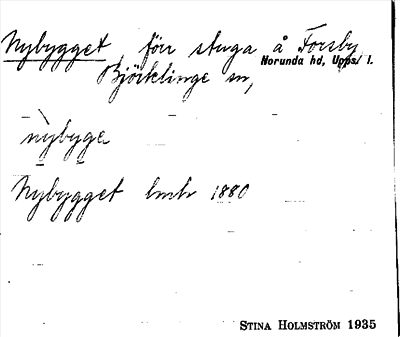 Nybygget, förr stuga å Forsby
Norunda hd, Upps/ l.
Björklinge sn,
nybyge
Nybygget hmtr 1880
STINA HOLMSTRÖM 1935